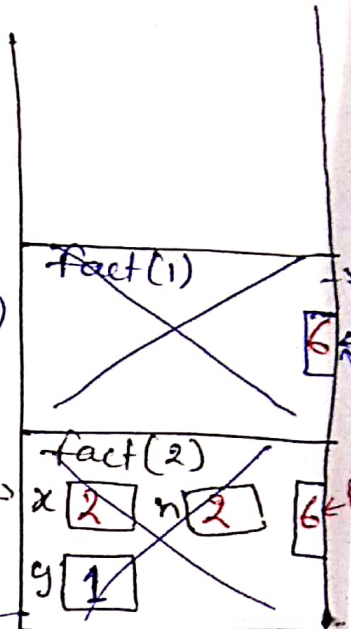 fact(1)
6
fact(2)
x 2 n 2 6
y 1